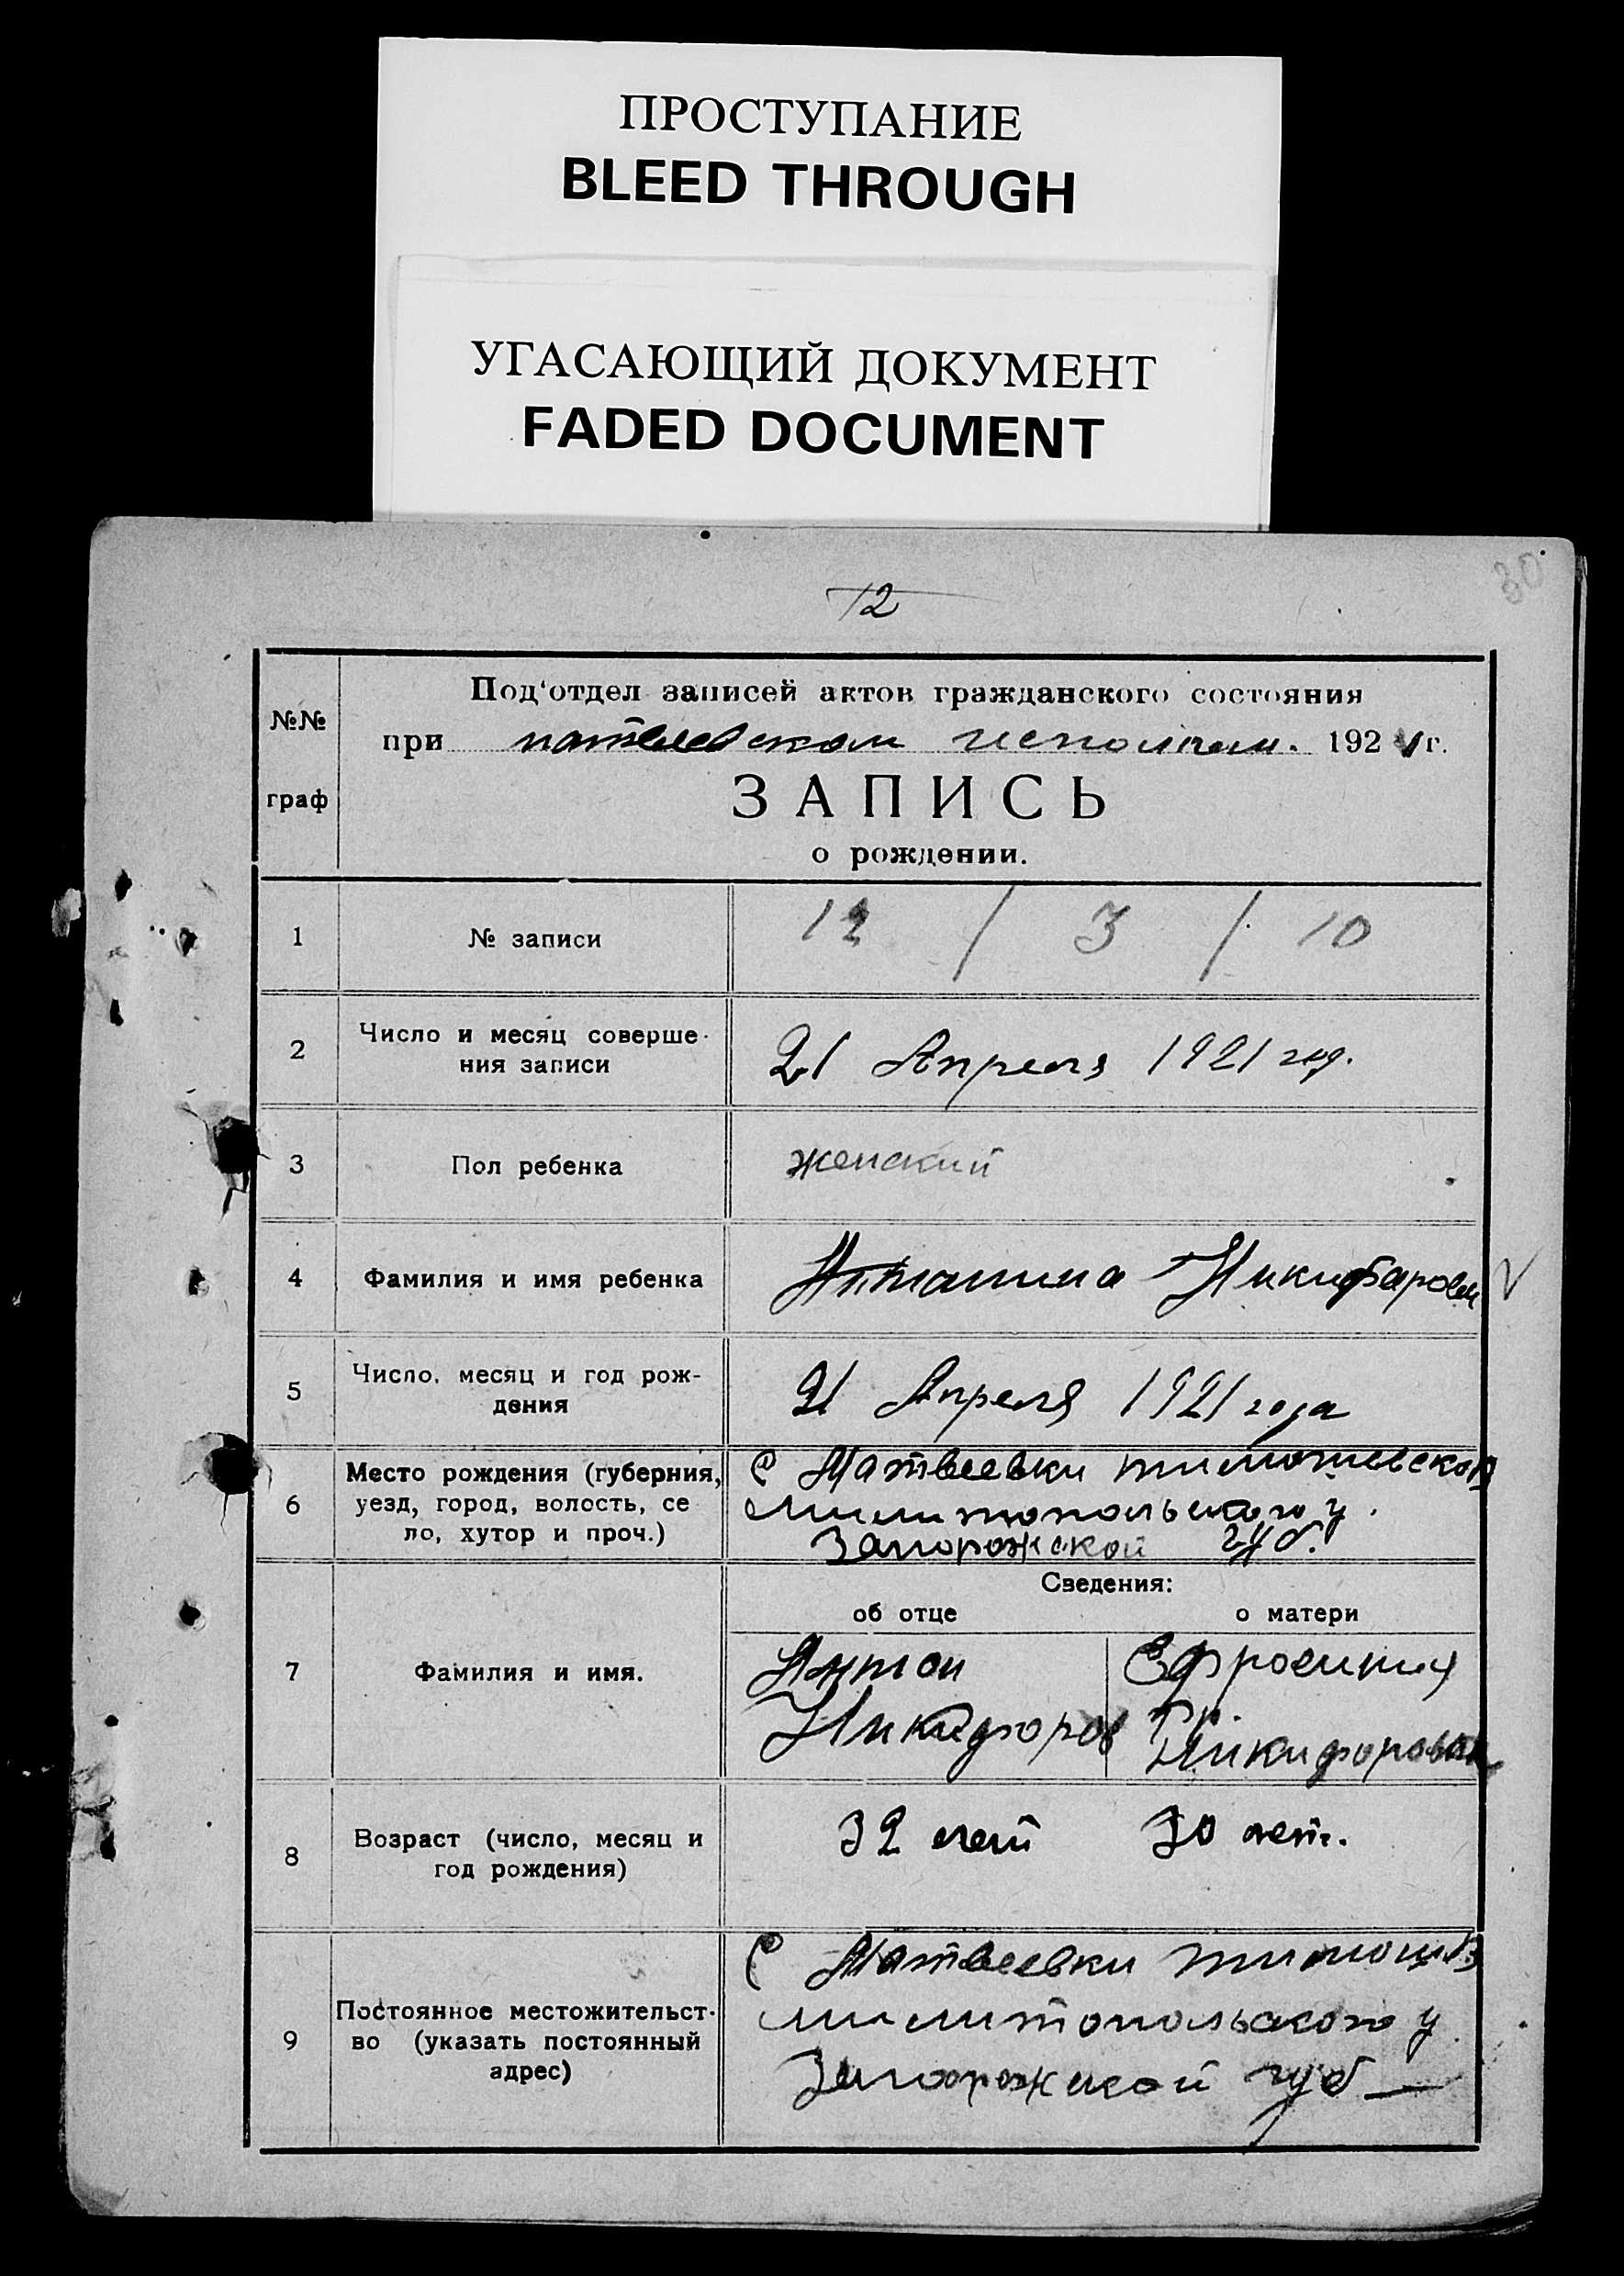 ПРОСТУПАНИЕ
BLEED THROUGH
УГАСАЮЩИЙ ДОКУМЕНТ
FADED DOCUMENT
30
12
№№
граф
Под'отдел записей актов гражданского состояния
при 192 1 г.
ЗАПИСЬ
о рождении.
1 № записи 12 / 3 / 10
2 Число и месяц соверше- 21 Апреля 1921 год.
ния записи
3 Пол ребенка женский
4 Фамилия и имя ребенка
5 Число, месяц и год рож- 21 Апреля 1921 года
дения
6 Место рождения (губерния, С Матвеевки
уезд, город, волость, се милитопольского у.
ло, хутор и проч.) Запорожской губ.
Сведения:
об отце о матери
7 Фамилия и имя. Антон Ефросиния
Никифоров Гр.
8 Возраст (число, месяц и 32 лет 30 лет.
год рождения)
9 Постоянное местожительст- С Матвеевки
во (указать постоянный милитопольского у
адрес) Запорожской губ